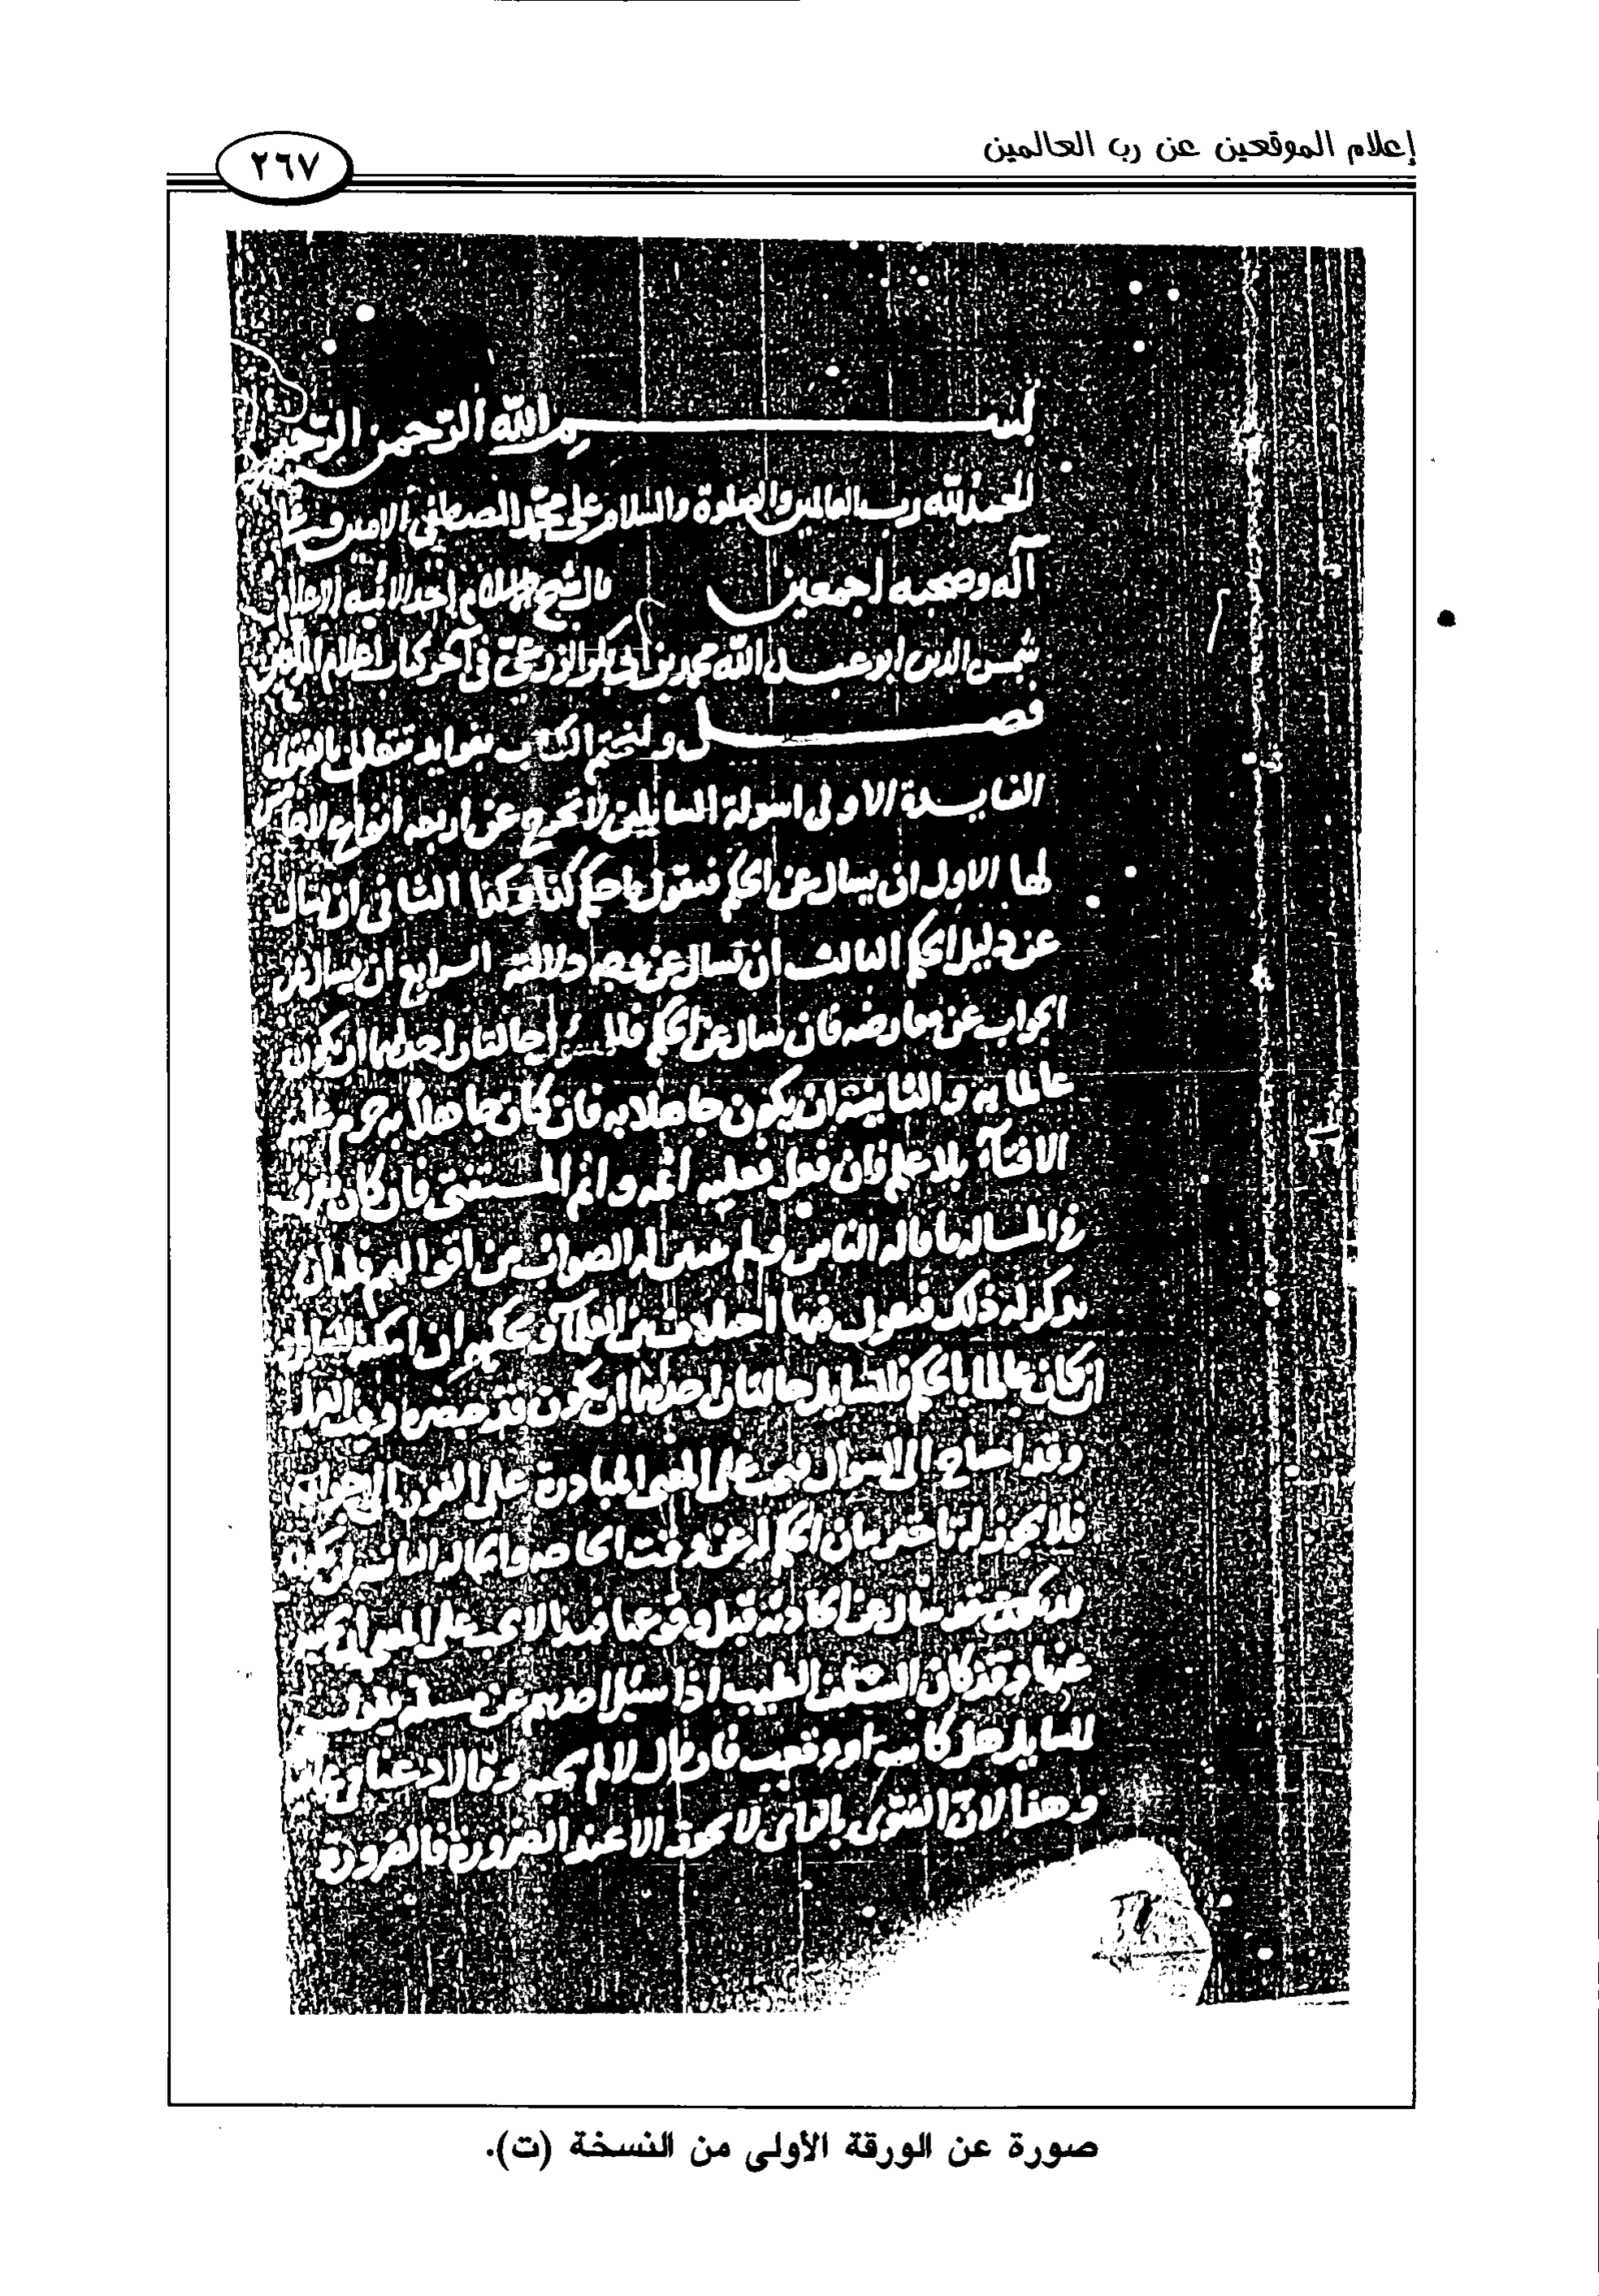 إعلام الموقعين عن رب العالمين
٢٦٧
بسم الله الرحمن الرحيم
الحمد لله رب العالمين والصلوة والسلام على محمد المصطفى الامين وعلى
آله وصحبه اجمعين قال الشيخ الامام احد الائمه الاعلام
شمس الدين ابو عبد الله محمد بن ابى بكر الزرعى فى آخر كتاب اعلام الموقعين
فصل ولنختم الكتاب بفوايد تتعلق بالفتوى
الفايدة الاولى اسولة السايلين لا تخرج عن اربعه انواع لا خامس
لها الاول ان يسال عن الحكم فيقول ما حكم كذا وكذا الثانى ان يسال
عن دليل الحكم الثالث ان يسال عن وجه دلالته الرابع ان يسال عن
الجواب عن معارضه فان سال عن الحكم فللمسئول حالتان احداهما ان يكون
عالما به والثانية ان يكون جاهلا به فان كان جاهلا به حرم عليه
الافتآء بلا علم فان فعل فعليه اثمه واثم المستفتى فان كان يعرف
فى المساله ما قاله الناس ولم يتبين له الصواب من اقوالهم فله ان
يذكر له ذلك فيقول فيها اختلاف بين العلمآء ويحكيه ان امكنه للسايل و
ان كان عالما بالحكم فللسايل حالتان احداهما ان يكون قد حضره وقت العمل
وقد احتاج الى السوال فيجب على المفتى المبادرة على الفور الى جوابه
فلا يجوز له تاخير بيان الحكم له عن وقت الحاجه والحاله الثانيه ان يكون
قد سال عن الحادثة قبل وقوعها فهذا لا يجب على المفتى ان يجيبه
عنها وقد كان السلف الطيب اذا سئل احدهم عن مسئلة يقول
للسايل هل كانت او وقعت فان قال لا لم يجبه وقال دعنا فى عافية
وهذا لان الفتوى بالراى لا يجوز الا عند الضرورة فالضرورة
صورة عن الورقة الأولى من النسخة (ت).